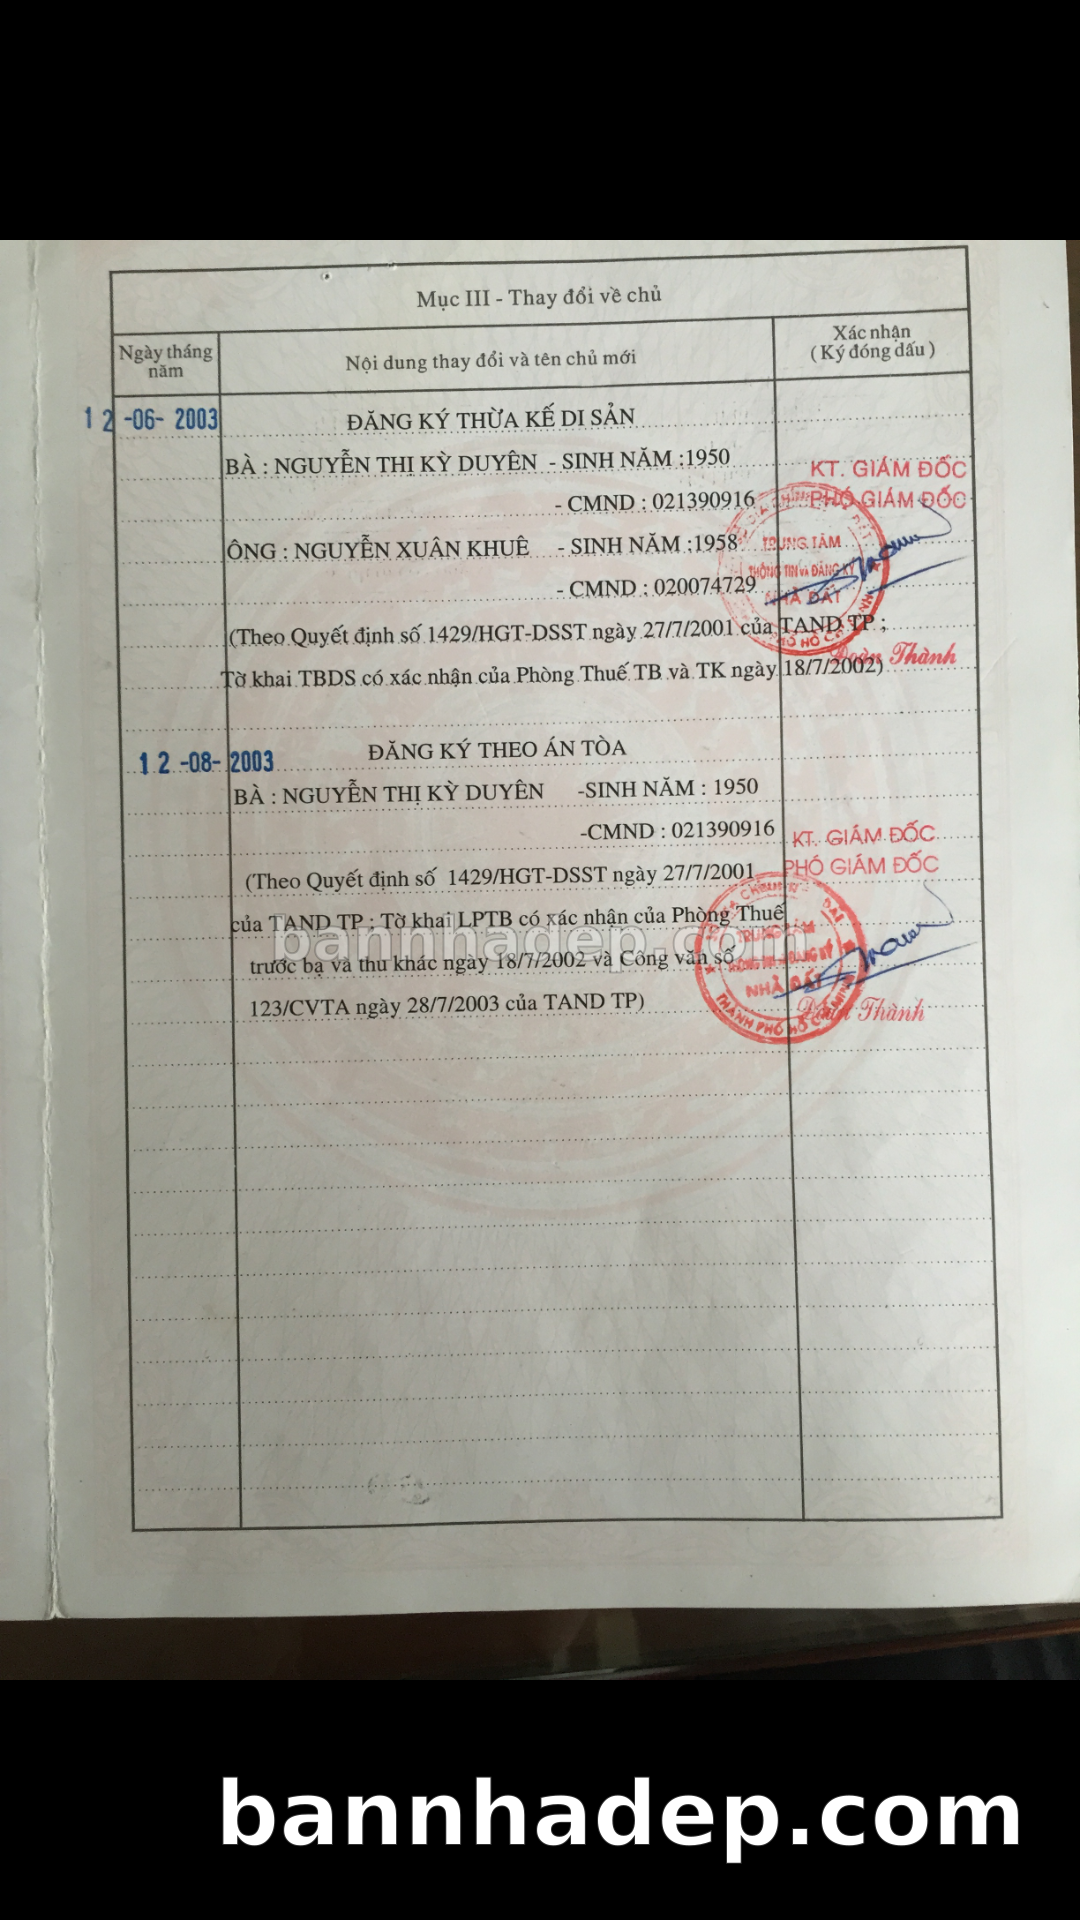 Mục III - Thay đổi về chủ
Ngày tháng năm
Nội dung thay đổi và tên chủ mới
Xác nhận
( Ký đóng dấu )
12 -06- 2003
ĐĂNG KÝ THỪA KẾ DI SẢN
BÀ : NGUYỄN THỊ KỲ DUYÊN - SINH NĂM :1950
- CMND : 021390916
KT. GIÁM ĐỐC
PHÓ GIÁM ĐỐC
ÔNG : NGUYỄN XUÂN KHUÊ - SINH NĂM :1958
- CMND : 020074729
TRUNG TÂM
THÔNG TIN VÀ ĐĂNG KÝ
NHÀ ĐẤT
(Theo Quyết định số 1429/HGT-DSST ngày 27/7/2001 của TAND TP ;
Đoàn Thành
Tờ khai TBDS có xác nhận của Phòng Thuế TB và TK ngày 18/7/2002)
12 -08- 2003
ĐĂNG KÝ THEO ÁN TÒA
BÀ : NGUYỄN THỊ KỲ DUYÊN -SINH NĂM : 1950
-CMND : 021390916
KT. GIÁM ĐỐC
PHÓ GIÁM ĐỐC
(Theo Quyết định số 1429/HGT-DSST ngày 27/7/2001
của TAND TP ; Tờ khai LPTB có xác nhận của Phòng Thuế
trước bạ và thu khác ngày 18/7/2002 và Công văn số
123/CVTA ngày 28/7/2003 của TAND TP)
TRUNG TÂM
THÔNG TIN VÀ ĐĂNG KÝ
NHÀ ĐẤT
THÀNH PHỐ HỒ CHÍ MINH
Đoàn Thành
bannhadep.com
bannhadep.com